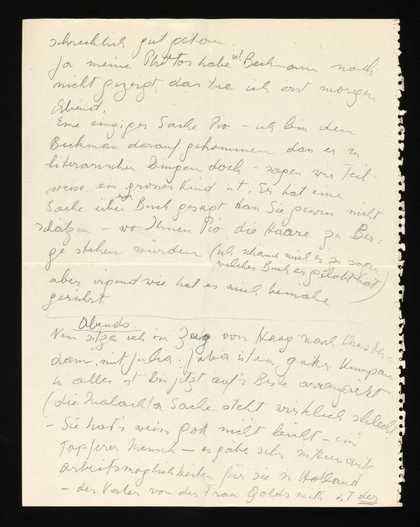 schrecklich gut getan.
Ja meine Photos habe ich Beckmann noch
nicht gezeigt, das tue ich erst morgen
Abend.
Eine einzige Sache Pio – ich bin dem
Beckmann darauf gekommen dass er in
literarischen Dingen doch – sagen wir Teil-
weise ein grosses Kind ist. Er hat eine
Sache über Buch gesagt dass Sie gewiss nicht
schätzen – wo Ihnen Pio die Haare zu Ber-
ge stehen würden (ich schäme mich es zu sagen
welches Buch er gelobt hat)
aber irgendwie hat es mich beinahe
gerührt
Abends
Nun sitze ich im Zug von Haag nach Amster-
dam mit Julia. Julia ist ein guter Kumpan
u alles ist bis jetzt auf's Beste arrangiert
(die Sache steht wirklich schlecht
– Sie hat's weiss Gott nicht leicht – ein
tapferer Mensch – es gäbe sehr interessante
Arbeitsmöglichkeiten für sie in Holland
– der Vater von der Frau Goldschmidt ist der